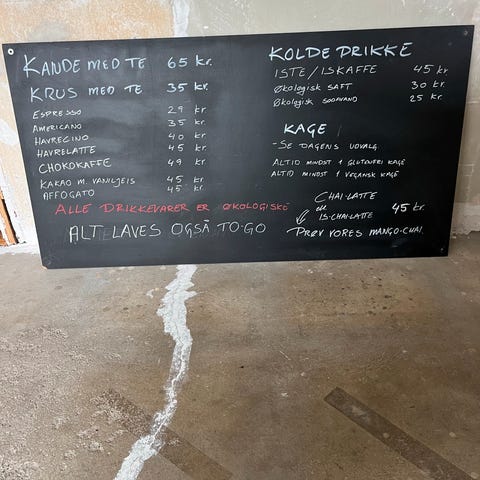 KANDE MED TE 65 kr.
KRUS MED TE 35 kr.
ESPRESSO 29 kr.
AMERICANO 35 kr.
HAVRECINO 40 kr.
HAVRELATTE 45 kr.
CHOKOKAFFE 49 kr.
KAKAO M. VANILJEIS 45 kr.
AFFOGATO 45 kr.
ALLE DRIKKEVARER ER ØKOLOGISKE
ALT LAVES OGSÅ TO-GO
KOLDE DRIKKE
ISTE/ISKAFFE 45 kr.
ØKOLOGISK SAFT 30 kr.
ØKOLOGISK SODAVAND 25 kr.
KAGE
-SE DAGENS UDVALG
ALTID MINDST 1 GLUTENFRI KAGE
ALTID MINDST 1 VEGANSK KAGE
CHAI-LATTE
IS-CHAI-LATTE 45 kr.
PRØV VORES MANGO-CHAI.